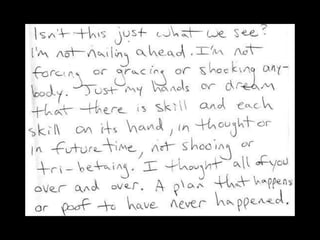 Isn't this just what we see?
I'm not nailing ahead. I'm not
forcing or gracing or shocking any-
body. Just my hands or dream
that there is skill and each
skill on its hand, in thought or
in future time, not shooing or
tri-betaing. I thought all of you
over and over. A plan that happens
or poof to have never happened.